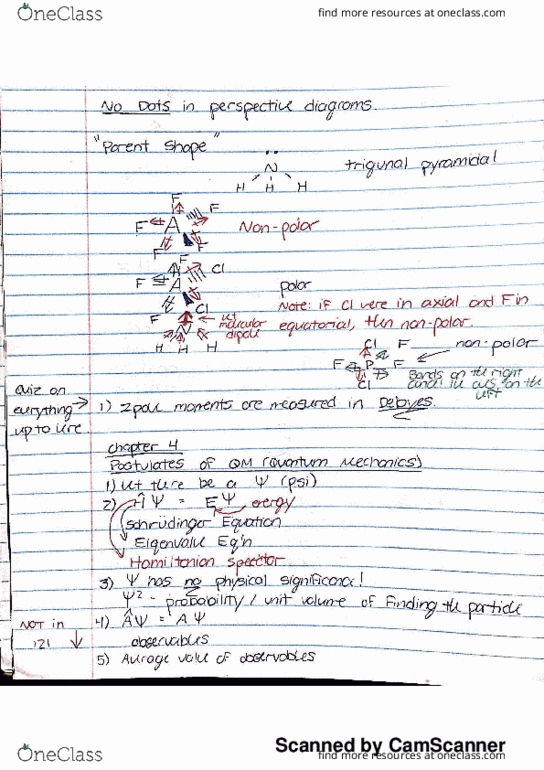 OneClass
find more resources at oneclass.com
No Dots in perspective diagrams.
"Parent Shape"
N
H H H
trigunal pyramidal
F
F A F
F F
Non-polar
F
F A Cl
Cl
polar
F
net molecular dipole
N
H H H
Note: if Cl were in axial and F in equatorial, then non-polar.
Cl F
F P F
Cl
non-polar
Bonds on the right
on the left
quiz on everything up to here
1) moments are measured in Debyes.
chapter 4
Postulates of QM (Quantum Mechanics)
1) let there be a Ψ (psi)
2) ĤΨ = EΨ energy
Schrödinger Equation
Eigenvalue Eq'n
Hamiltonian
3) Ψ has no physical significance!
Ψ² - probability / unit volume of finding the particle
NOT in 121 ↓
4) ÂΨ = AΨ
observables
5) Average value of observables
Scanned by CamScanner
OneClass
find more resources at oneclass.com